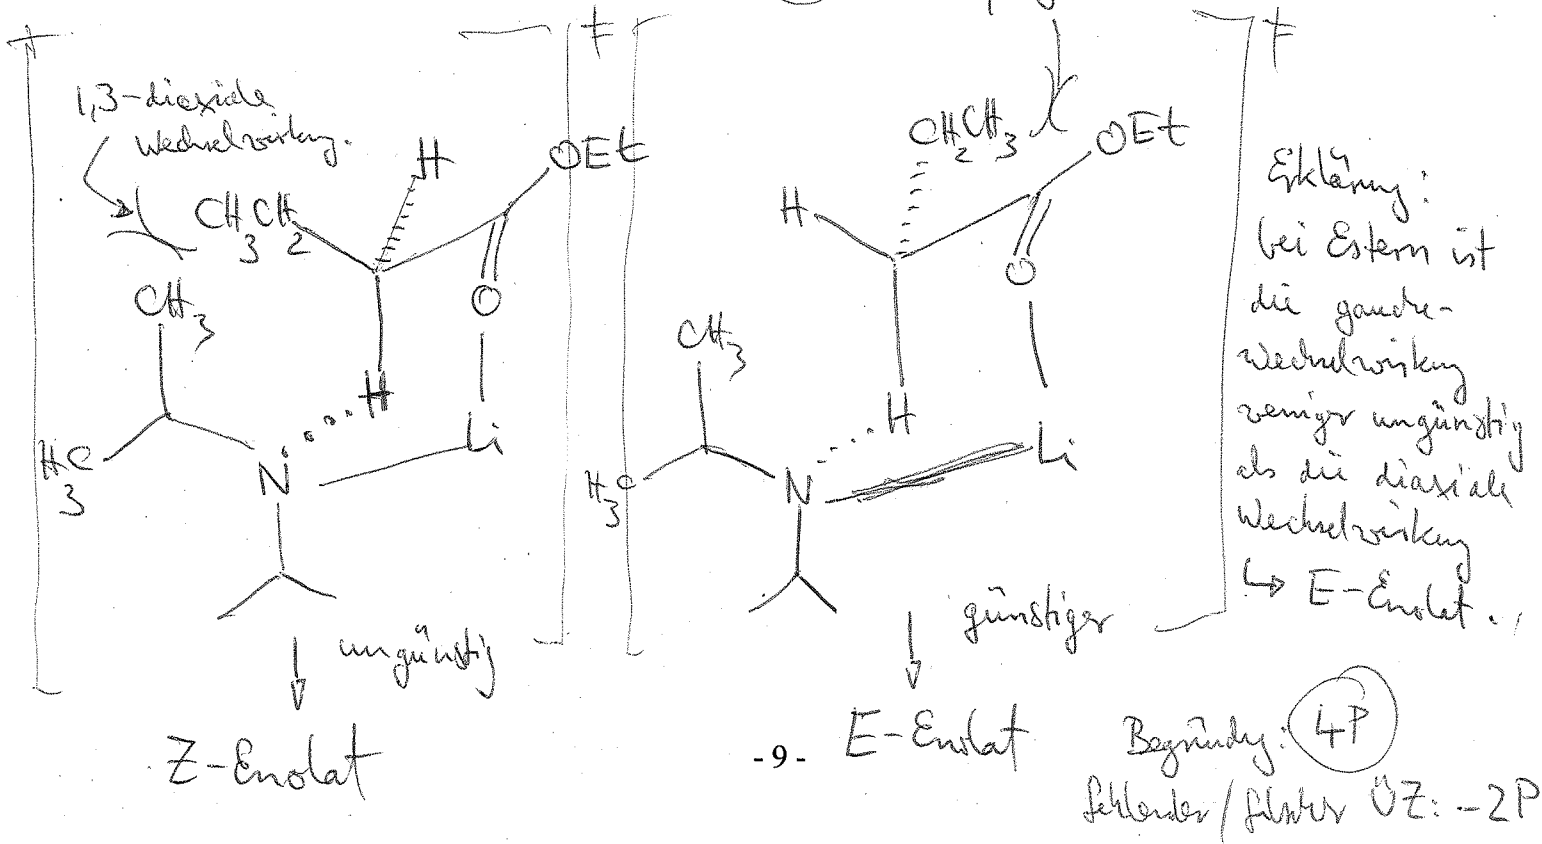 1,3-diaxiale
Wechselwirkung.
H
OEt
CH3CH2
CH3
O
H
H3C
N
Li
ungünstig
Z-Enolat
‡
‡
CH2CH3
OEt
H
O
CH3
H
H3C
N
Li
günstiger
E-Enolat
Erklärung:
bei Estern ist
die gauche-
Wechselwirkung
weniger ungünstig
als die diaxiale
Wechselwirkung
↳ E-Enolat.
-9-
Begründg: 4P
fehlender/falscher ÜZ: -2P